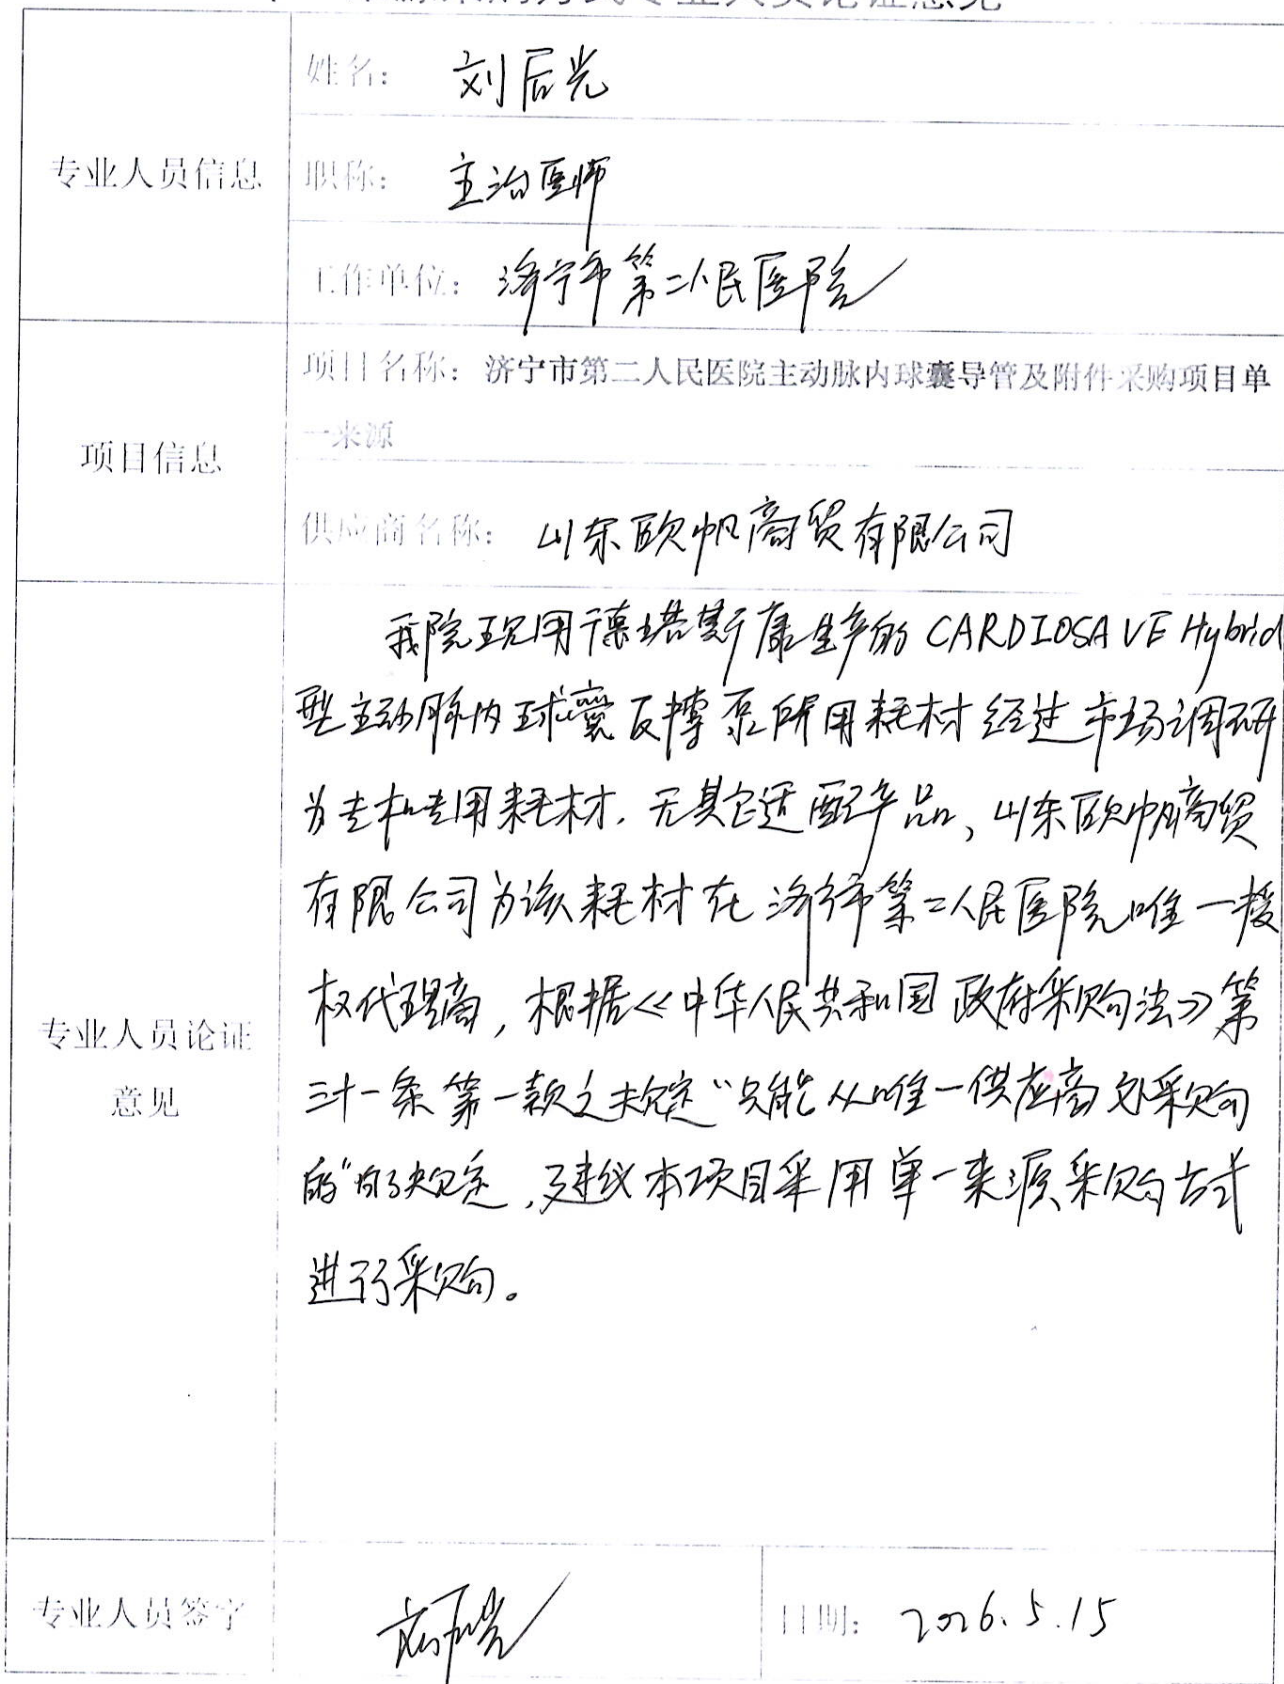 专业人员论证意见
姓名： 刘后光
专业人员信息
职称： 主治医师
工作单位： 济宁市第二人民医院
项目名称：济宁市第二人民医院主动脉内球囊导管及附件采购项目单
一来源
项目信息
供应商名称： 山东欧帆商贸有限公司
我院现用德塔斯康生产的 CARDIOSAVE Hybrid
型主动脉内球囊反搏泵所用耗材经过市场调研
为专机专用耗材. 无其它适配产品, 山东欧帆商贸
有限公司为该耗材在济宁市第二人民医院唯一授
权代理商, 根据《中华人民共和国政府采购法》第
专业人员论证
意见
三十一条第一款之规定“只能从唯一供应商处采购
的”的规定, 建议本项目采用单一来源采购方式
进行采购。
专业人员签字
刘后光
日期： 2026.5.15